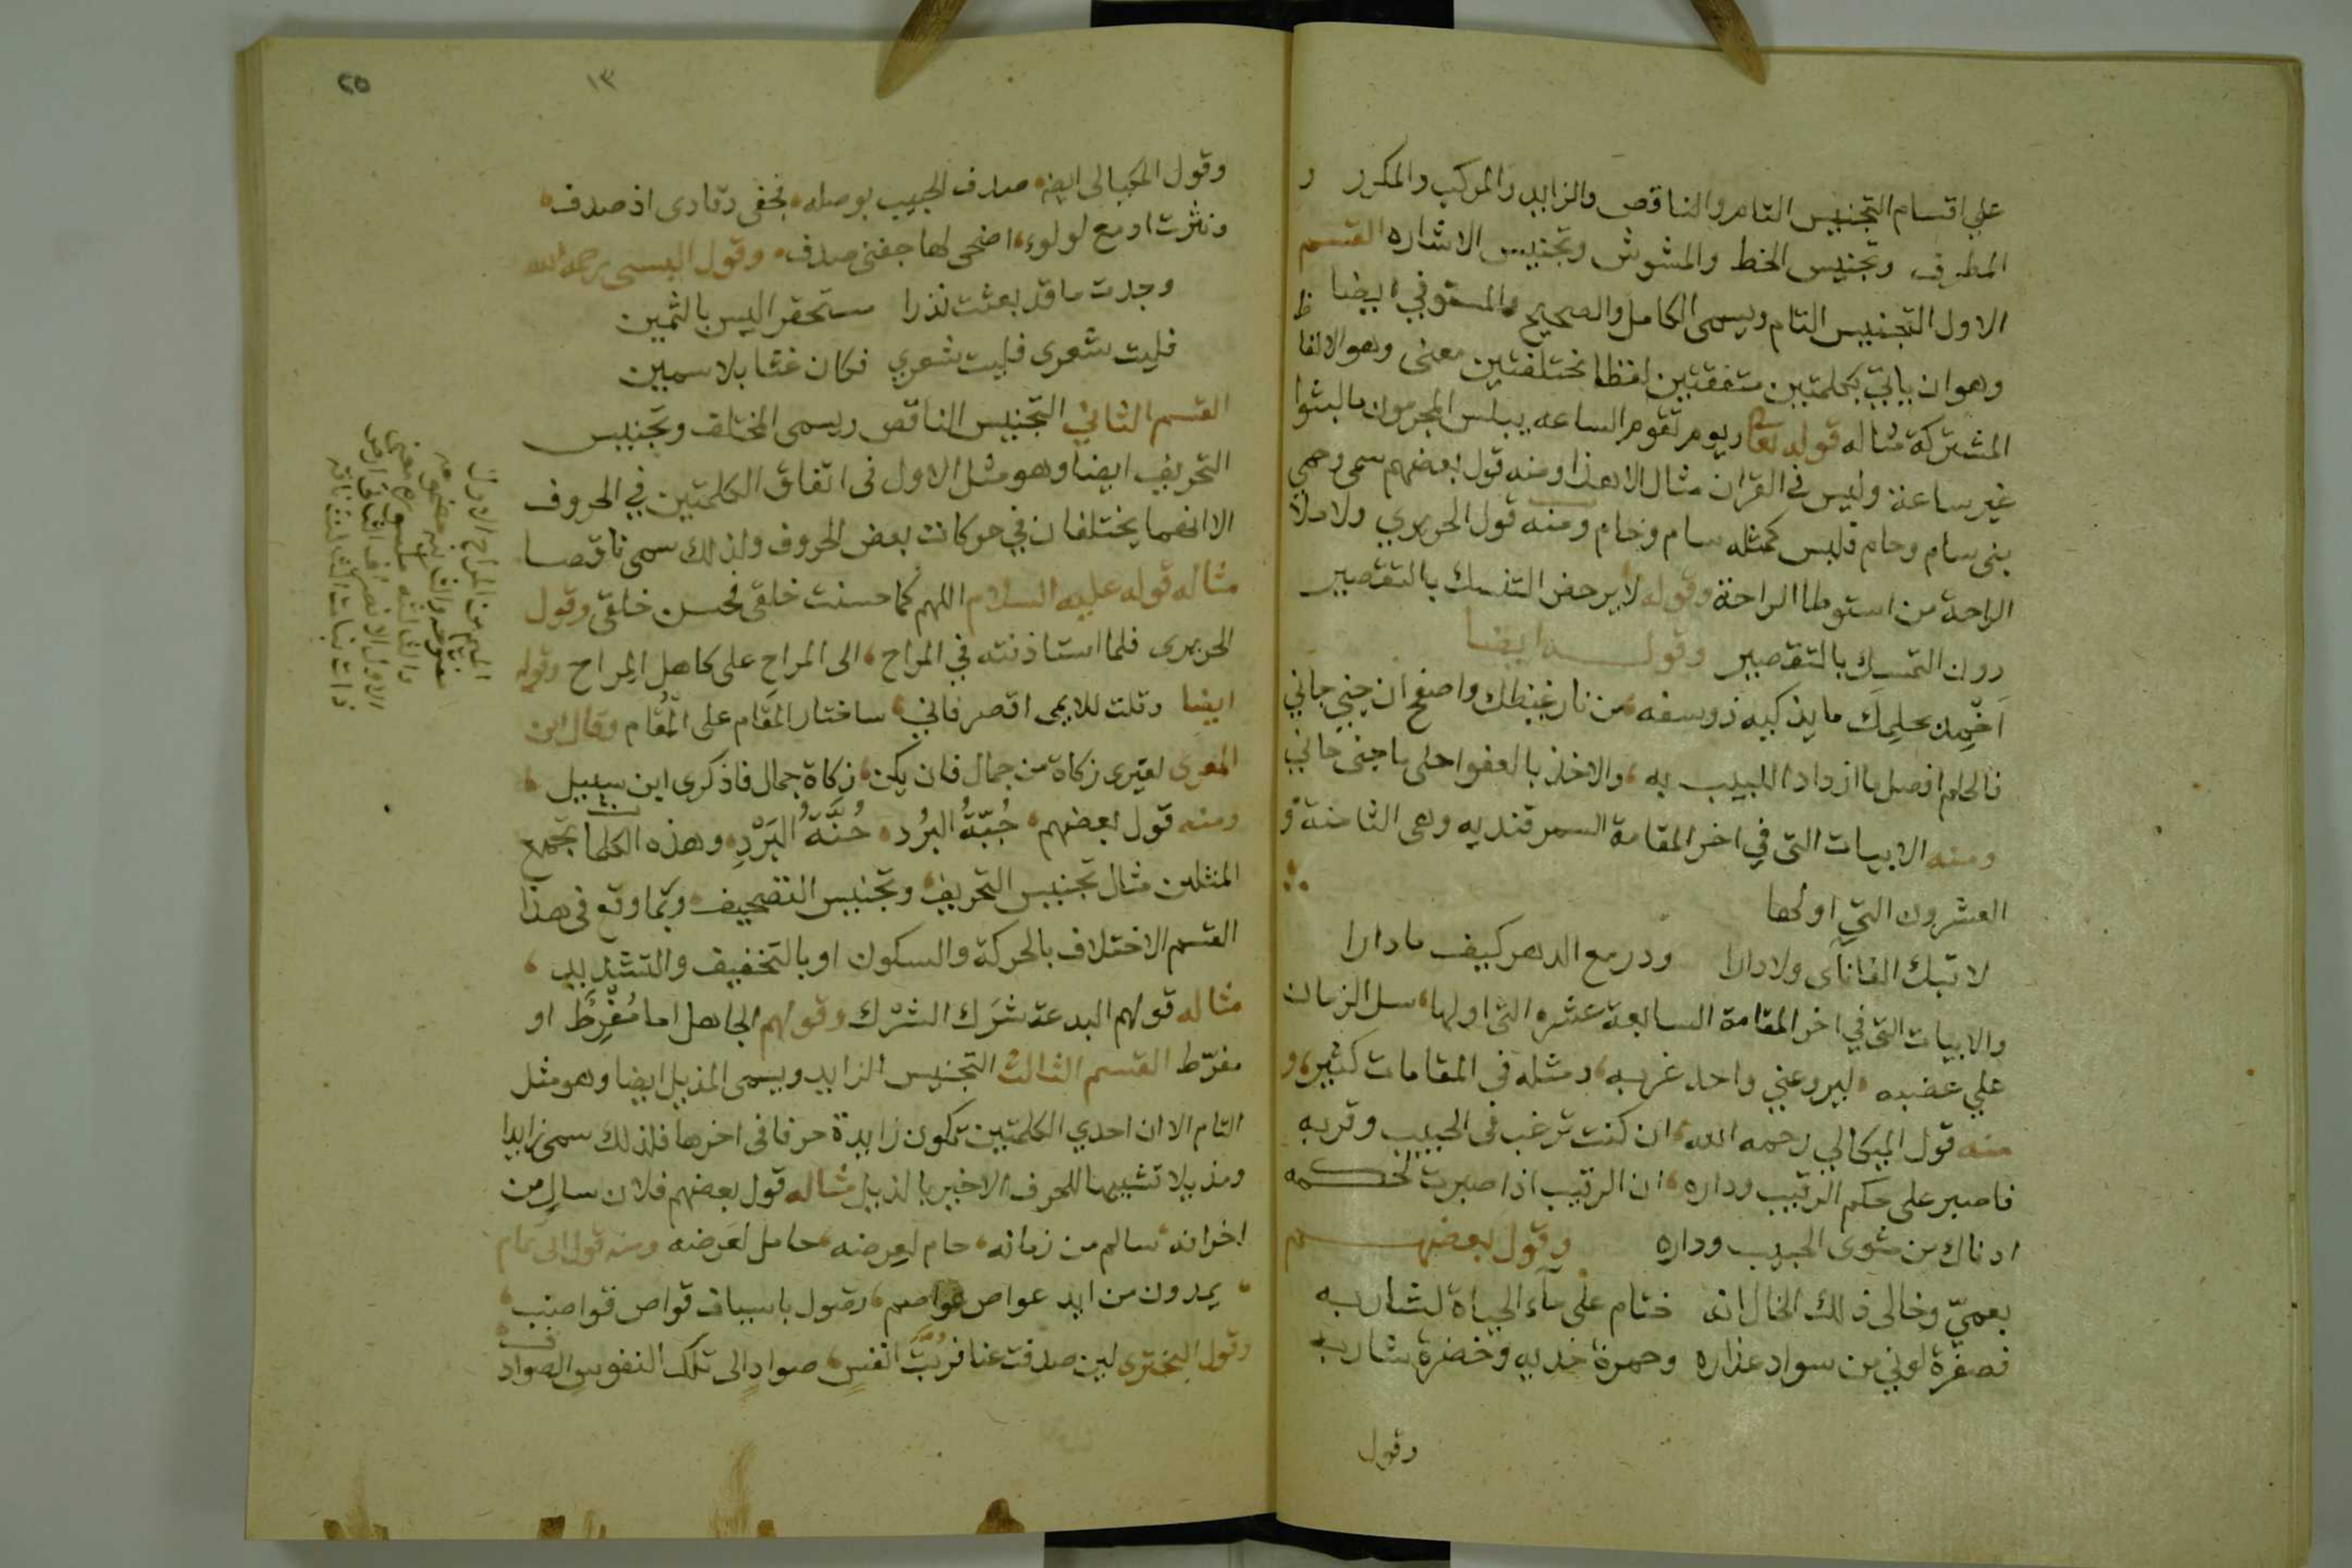 علي اقسام التجنيس التام والناقص والزايد والمركب والمكرر و
المطرف وتجنيس الخط والمشوش وتجنيس الاشاره القسم
الاول التجنيس التام ويسمى الكامل والصحيح والمستوفي ايضا
وهو ان ياتي بكلمتين متفقتين لفظا مختلفتين معنى وهو الالفاظ
المشتركة مثاله قوله تعالى ويوم تقوم الساعه يبلس المجرمون ما لبثوا
غير ساعة وليس في القران مثال الا هذا ومنه قول بعضهم سمى وحمي
بني سام وحام فليس كمثله سام وحام ومنه قول الحريري ولا ملأ
الراحة من استوطا الراحة وقوله لا يرحض التفسك بالتقصير
دون التمسك بالتقصير وقولـــه ايضا
اخمد بحلمك ما يذكيه ذو سفه من نار غيظك واصفح ان جني جاني
فالحلم افضل ما ازداد اللبيب به والاخذ بالعفو احلى ما جنى جاني
ومنه الابيات التى في اخر المقامة السمرقنديه وهى الثامنة و
العشرون التي اولها
لا تبك الفا نآى ولا دارا ودر مع الدهر كيف ما دارا
والابيات التى في اخر المقامة السابعة عشره التى اولها سل الزمان
علي عضبه ليروعني واحد غربه ومثله في المقامات كثير و
منه قول الميكالي رحمه الله ان كنت ترغب فى الحبيب وقربه
فاصبر على حكم الرقيب وداره ان الرقيب اذا صبرت لحكمه
ادناك من مثوى الحبيب وداره وقول بعضهـــم
بعميّ وخالى ذلك الخال انه ختام على مآء الحياة لشاربه
فصفرة لوني من سواد عذاره وحمرة خديه وخضرة شاربه
وقول
٢٥
١٣
وقول المكيالى ايضه صدف الحبيب بوصله فجفى رقادى اذ صدف
ونثرت ادمع لولوء اضحى لها جفنى صدف وقول البستى رحمه الله
وجدت ما قد بعثت نذرا مستحقر اليس بالثمين
فليت شعرى فليت شعري فكان غثا بلا سمين
القسم الثاني التجنيس الناقص ويسمى المختلف وتجنيس
التحريف ايضا وهو مثل الاول فى اتفاق الكلمتين في الحروف
الا انهما يختلفان في حركات بعض الحروف ولذلك سمى ناقصا
مثاله قوله عليه السلام اللهم كما حسنت خلقى فحسن خلقى وقول
الحريرى فلما استاذنته في المراح الى المراح على كاهل المراح وقوله
ايضا وقلت للايمى اقصر فاني ساختار المَقام على المُقام وقال ابن
المعرى لغيرى زكاة من جمال فان يكن زكاة جمال فاذكرى ابن سبيل
ومنه قول بعضهم جُبّةُ البُرد جُنَّةُ البَرْدِ وهذه الكلمات تجمع
المثلين مثال تجنيس التحريف وتجنيس التصحيف ومما وقع فى هذا
القسم الاختلاف بالحركة والسكون او بالتخفيف والتشديد
مثاله قولهم البدعة شَرَك الشرْك وقولهم الجاهل اما مُفْرِط او
مفرّط القسم الثالث التجنيس الزايد ويسمى المذيل ايضا وهو مثل
التام الا ان احدي الكلمتين تكون زايدة حرفا فى اخرها فلذلك سمى زايدا
ومذيلا تشبيها للحرف الاخير بالذيل مثاله قول بعضهم فلان سال من
اخوانه سالم من زمانه حام لعرضه حامل لعرضه ومنه قول ابى تمام
يمدون من ايد عواص عواصم تصول باسياف قواض قواضب
وقول البحترى لين صدفت عنا فربّت انفسٍ صوادٍ الى تلك النفوس الصوادف